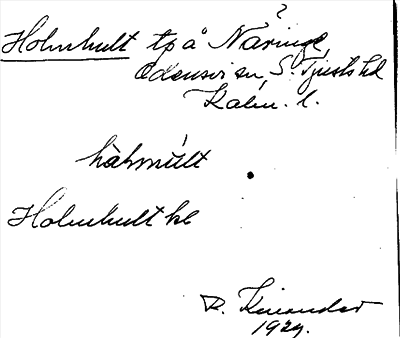 ?
Holmhult tp å Näringe
Odensvi sn S. Tjusts hd
Kalm. l.
hàlmúlt
Holmhult kl
R. Kinander
1929.